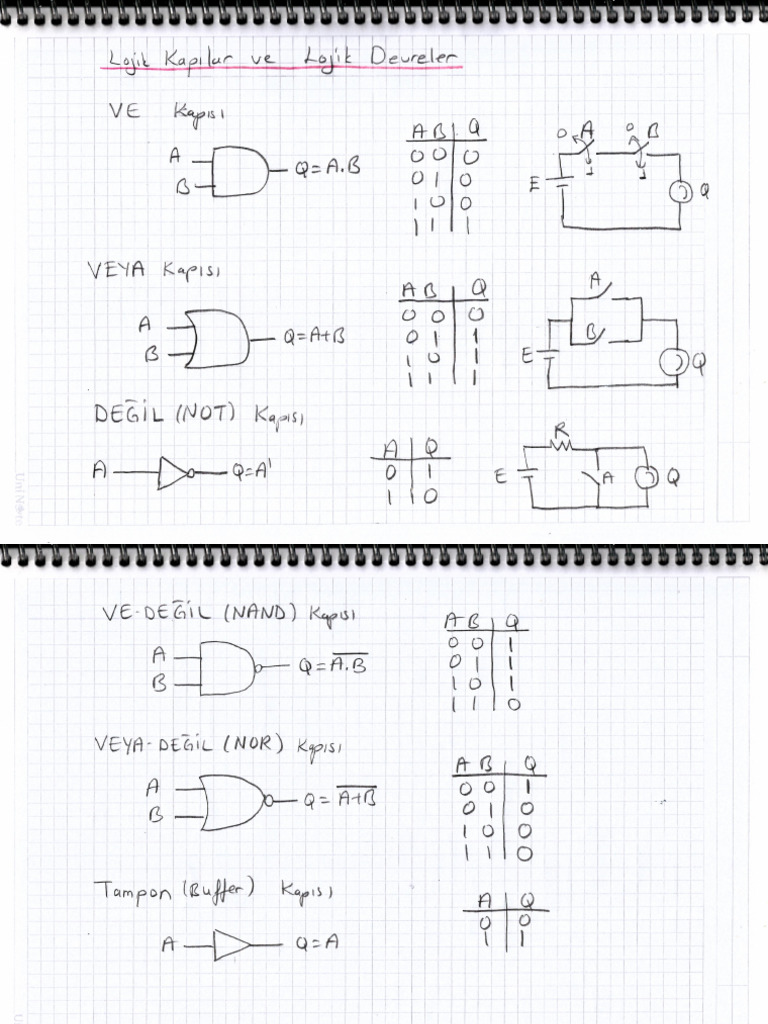 Lojik Kapılar ve Lojik Devreler
VE Kapısı
A
B
Q=A.B
A B Q
0 0 0
0 1 0
1 0 0
1 1 1
0 A 0 B
1 1
E
Q
VEYA Kapısı
A
B
Q=A+B
A B Q
0 0 0
0 1 1
1 0 1
1 1 1
A
B
E
Q
DEĞİL (NOT) Kapısı
A
Q=A'
A Q
0 1
1 0
R
E
A
Q
VE-DEĞİL (NAND) Kapısı
A
B
Q= A̅.̅B̅
A B Q
0 0 1
0 1 1
1 0 1
1 1 0
VEYA-DEĞİL (NOR) Kapısı
A
B
Q= A̅+̅B̅
A B Q
0 0 1
0 1 0
1 0 0
1 1 0
Tampon (Buffer) Kapısı
A
Q=A
A Q
0 0
1 1